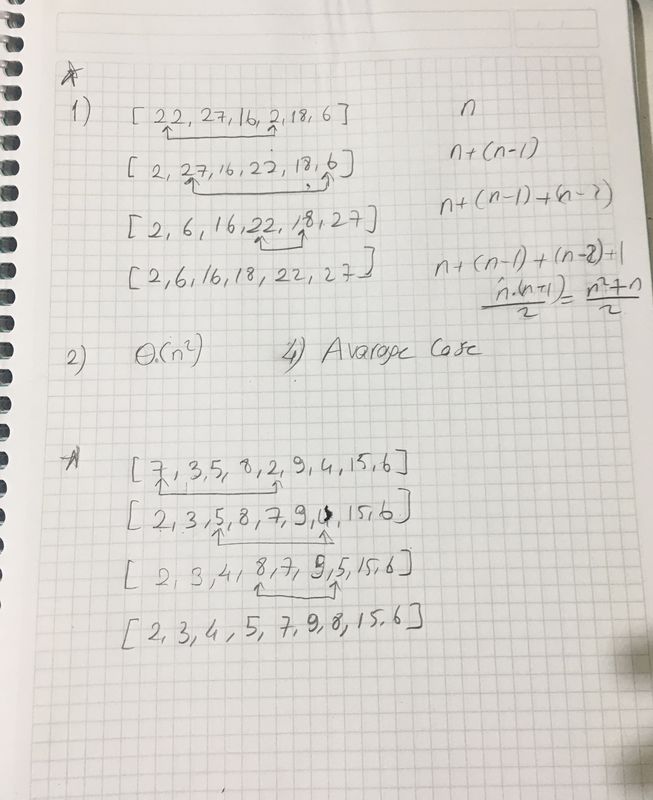 1) [ 22, 27, 16, 2, 18, 6 ] n
[ 2, 27, 16, 22, 18, 6 ] n+(n-1)
[ 2, 6, 16, 22, 18, 27 ] n+(n-1)+(n-2)
[ 2, 6, 16, 18, 22, 27 ] n+(n-1)+(n-2)+1
n.(n+1)/2 = n²+n/2
2) Θ(n²) 4) Avarage Case
[ 7, 3, 5, 8, 2, 9, 4, 15, 6 ]
[ 2, 3, 5, 8, 7, 9, 4, 15, 6 ]
[ 2, 3, 4, 8, 7, 9, 5, 15, 6 ]
[ 2, 3, 4, 5, 7, 9, 8, 15, 6 ]